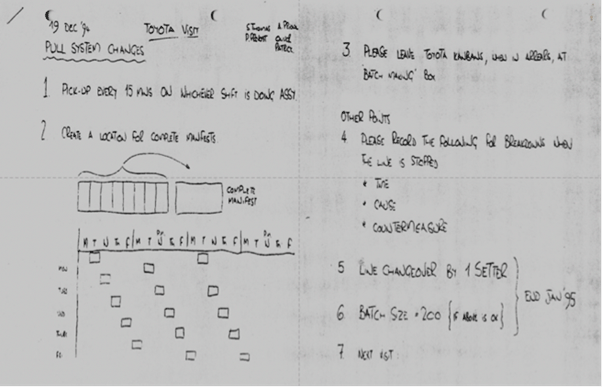 19 DEC '94
TOYOTA VISIT
PULL SYSTEM CHANGES
1 PICK-UP EVERY 15 MINS ON WHICHEVER SHIFT IS DOING ASSY.
2 CREATE A LOCATION FOR COMPLETE MANIFESTS
COMPLETE
MANIFEST
M T W T F M T W T F M T W T F M T W T F
MON
TUE
WED
THUR
FRI
3 PLEASE LEAVE TOYOTA KANBANS, WHEN IN ARREARS, AT
BATCH MAKING BOX
OTHER POINTS
4 PLEASE RECORD THE FOLLOWING FOR BREAKDOWNS WHEN
THE LINE IS STOPPED
* TIME
* CAUSE
* COUNTERMEASURE
5 LINE CHANGEOVER BY 1 SETTER
6 BATCH SIZE = 200 {IF ABOVE IS OK}
END JAN '95
7 NEXT VISIT